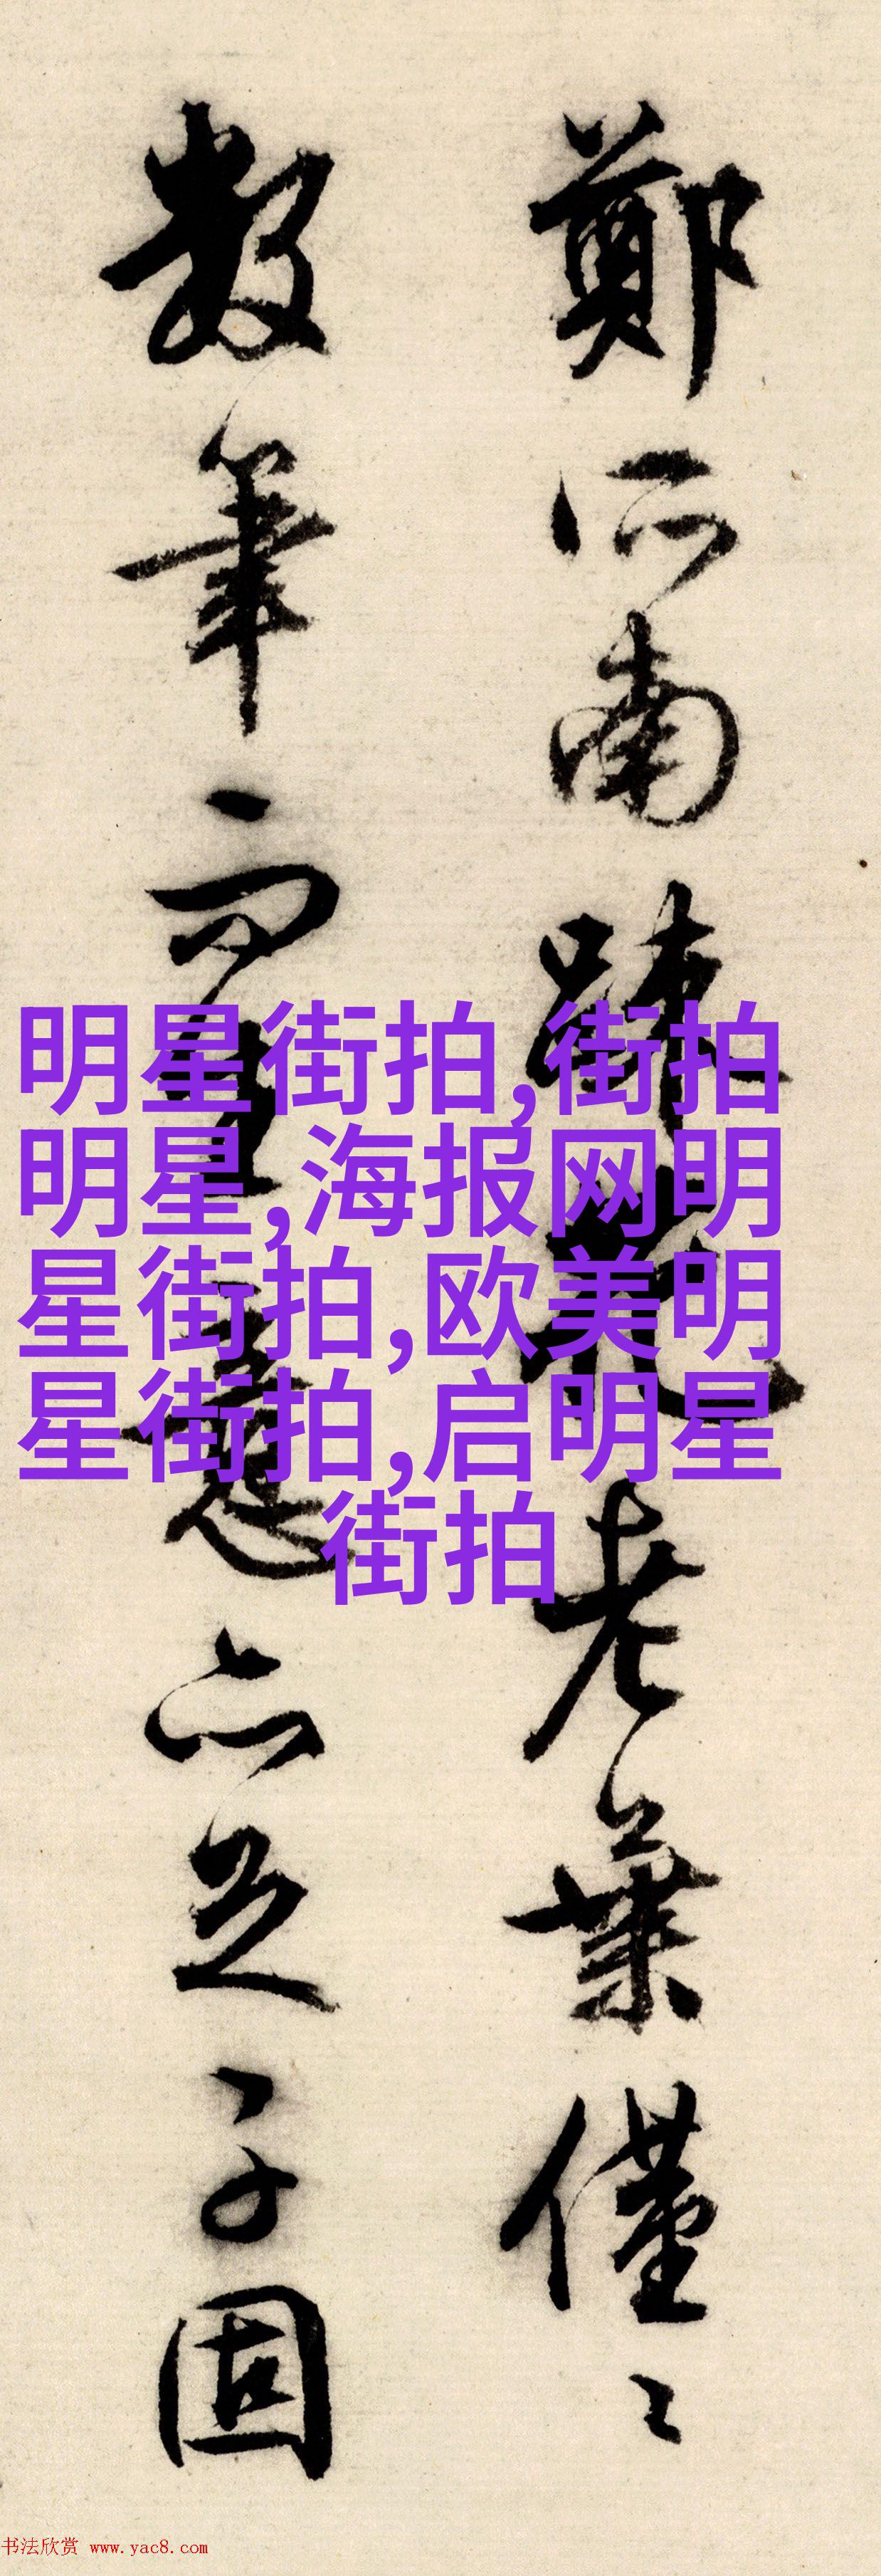 鄭所南踈花老葉僅〻
數筆而生意亦足子固
明星街拍,街拍
明星,海报网明
星街拍,欧美明
星街拍,启明星
街拍
书法欣赏 www.yac8.com